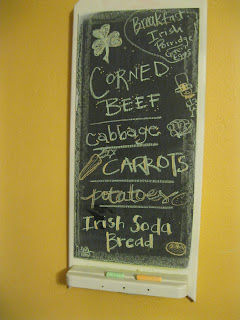 Breakfast:
Irish
Porridge
Green
Eggs
CORNED
BEEF
cabbage
CARROTS
potatoes
Irish Soda
Bread